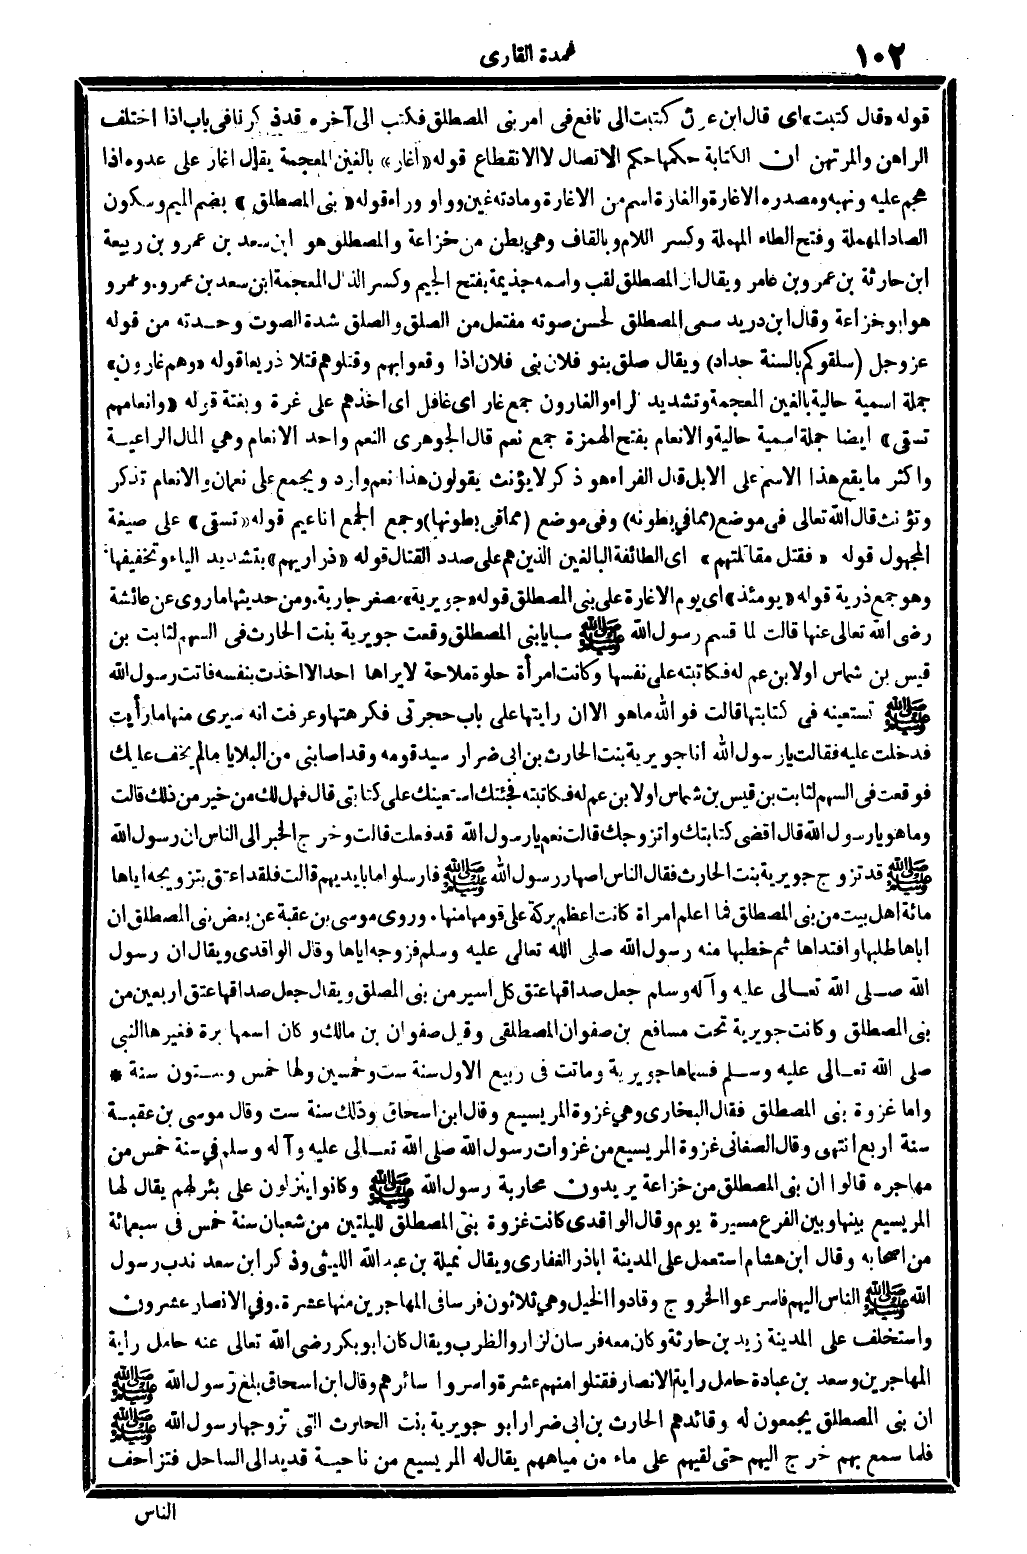 ١٠٢
عمدة القارى
قوله «قال كتبت» اى قال ابن عون كتبت الى نافع فى امر بنى المصطلق فكتب الى آخره قد ذكرنا فى باب اذا اختلف
الراهن والمرتهن ان الكتابة حكمها حكم الاتصال لا الانقطاع قوله «أغار» بالغين المعجمة يقال اغار على عدوه اذا
هجم عليه ونهبه ومصدره الاغارة والغارة اسم من الاغارة ومادته غين وواو وراء قوله «بنى المصطلق» بضم الميم وسكون
الصاد المهملة وفتح الطاء المهملة وكسر اللام وبالقاف وهي بطن من خزاعة والمصطلق هو ابن سعد بن عمرو بن ربيعة
ابن حارثة بن عمرو بن عامر ويقال ان المصطلق لقب واسمه جذيمة بفتح الجيم وكسر الذال المعجمة ابن سعد بن عمرو. وعمرو
هو ابو خزاعة وقال ابن دريد سمى المصطلق لحسن صوته مفتعل من الصلق والصلق شدة الصوت وحدته من قوله
عز وجل (سلقوكم بالسنة حداد) ويقال صلق بنو فلان بنى فلان اذا وقعوا بهم وقتلوهم قتلا ذريعا قوله «وهم غارون»
جملة اسمية حالية بالغين المعجمة وتشديد الراء والغارون جمع غار اى غافل اى اخذهم على غرة وبغتة قوله «وانعامهم
تسقى» ايضا جملة اسمية حالية والانعام بفتح الهمزة جمع نعم قال الجوهرى النعم واحد الانعام وهي المال الراعية
واكثر ما يقع هذا الاسم على الابل قال الفراء هو ذكر لا يؤنث يقولون هذا نعم وارد ويجمع على نعمان والانعام تذكر
وتؤنث قال الله تعالى فى موضع (مما في بطونه) وفى موضع (مما فى بطونها) وجمع الجمع اناعيم قوله «تسقى» على صيغة
المجهول قوله «فقتل مقاتلتهم» اى الطائفة البالغين الذين هم على صدد القتال قوله «ذراريهم» بتشديد الياء وتخفيفها
وهو جمع ذرية قوله «يومئذ» اى يوم الاغارة على بنى المصطلق قوله «جويرية» مصغر جارية. ومن حديثها ما روى عن عائشة
رضى الله تعالى عنها قالت لما قسم رسول الله ﷺ سبايا بنى المصطلق وقعت جويرية بنت الحارث فى السهم لثابت بن
قيس بن شماس او لابن عم له فكاتبته على نفسها وكانت امرأة حلوة ملاحة لا يراها احد الا اخذت بنفسه فاتت رسول الله
ﷺ تستعينه فى كتابتها قالت فو الله ما هو الا ان رايتها على باب حجرتى فكرهتها وعرفت انه سيرى منها ما رأيت
فدخلت عليه فقالت يا رسول الله أنا جويرية بنت الحارث بن ابى ضرار سيد قومه وقد اصابنى من البلايا ما لم يخف عليك
فوقعت فى السهم لثابت بن قيس بن شماس او لابن عم له فكاتبته فجئتك استعينك على كتابتى قال فهل لك من خير من ذلك قالت
وما هو يا رسول الله قال اقضى كتابتك واتزوجك قالت نعم يا رسول الله قد فعلت قالت وخرج الخبر الى الناس ان رسول الله
ﷺ قد تزوج جويرية بنت الحارث فقال الناس اصهار رسول الله ﷺ فارسلوا ما بايديهم قالت فلقد اعتق بتزويجه اياها
مائة اهل بيت من بنى المصطلق فما اعلم امراة كانت اعظم بركة على قومها منها. وروى موسى بن عقبة عن بعض بنى المصطلق ان
اباها طلبها وافتداها ثم خطبها منه رسول الله صلى الله تعالى عليه وسلم فزوجه اياها وقال الواقدى ويقال ان رسول
الله صلى الله تعالى عليه وآله وسلم جعل صداقها عتق كل اسير من بنى المصلق ويقال جعل صداقها عتق اربعين من
بنى المصطلق وكانت جويرية تحت مسافع بن صفوان المصطلقى وقيل صفوان بن مالك وكان اسمها برة فغيرها النبى
صلى الله تعالى عليه وسلم فسماها جويرية وماتت فى ربيع الاول سنة ست وخمسين ولها خمس وستون سنة *
واما غزوة بنى المصطلق فقال البخارى وهي غزوة المريسيع وقال ابن اسحاق وذلك سنة ست وقال موسى بن عقبة
سنة اربع انتهى وقال الصغانى غزوة المريسيع من غزوات رسول الله صلى الله تعالى عليه وآله وسلم في سنة خمس من
مهاجره قالوا ان بنى المصطلق من خزاعة يريدون محاربة رسول الله ﷺ وكانوا ينزلون على بئر لهم يقال لها
المريسيع بينها وبين الفرع مسيرة يوم وقال الواقدى كانت غزوة بنى المصطلق لليلتين من شعبان سنة خمس فى سبعمائة
من اصحابه وقال ابن هشام استعمل على المدينة اباذر الغفارى ويقال نميلة بن عبد الله الليثى وذكر ابن سعد ندب رسول
الله ﷺ الناس اليهم فاسرعوا الخروج وقادوا الخيل وهي ثلاثون فرسا فى المهاجرين منها عشرة. وفي الانصار عشرون
واستخلف على المدينة زيد بن حارثة وكان معه فرسان لزاز والظرب ويقال كان ابو بكر رضى الله تعالى عنه حامل راية
المهاجرين وسعد بن عبادة حامل راية الانصار فقتلوا منهم عشرة واسروا سائرهم وقال ابن اسحاق بلغ رسول الله ﷺ
ان بنى المصطلق يجمعون له وقائدهم الحارث بن ابى ضرار ابو جويرية بنت الحارث التى تزوجها رسول الله ﷺ
فلما سمع بهم خرج اليهم حتى لقيهم على ماء من مياههم يقال له المريسيع من ناحية قديد الى الساحل فتزاحف
الناس